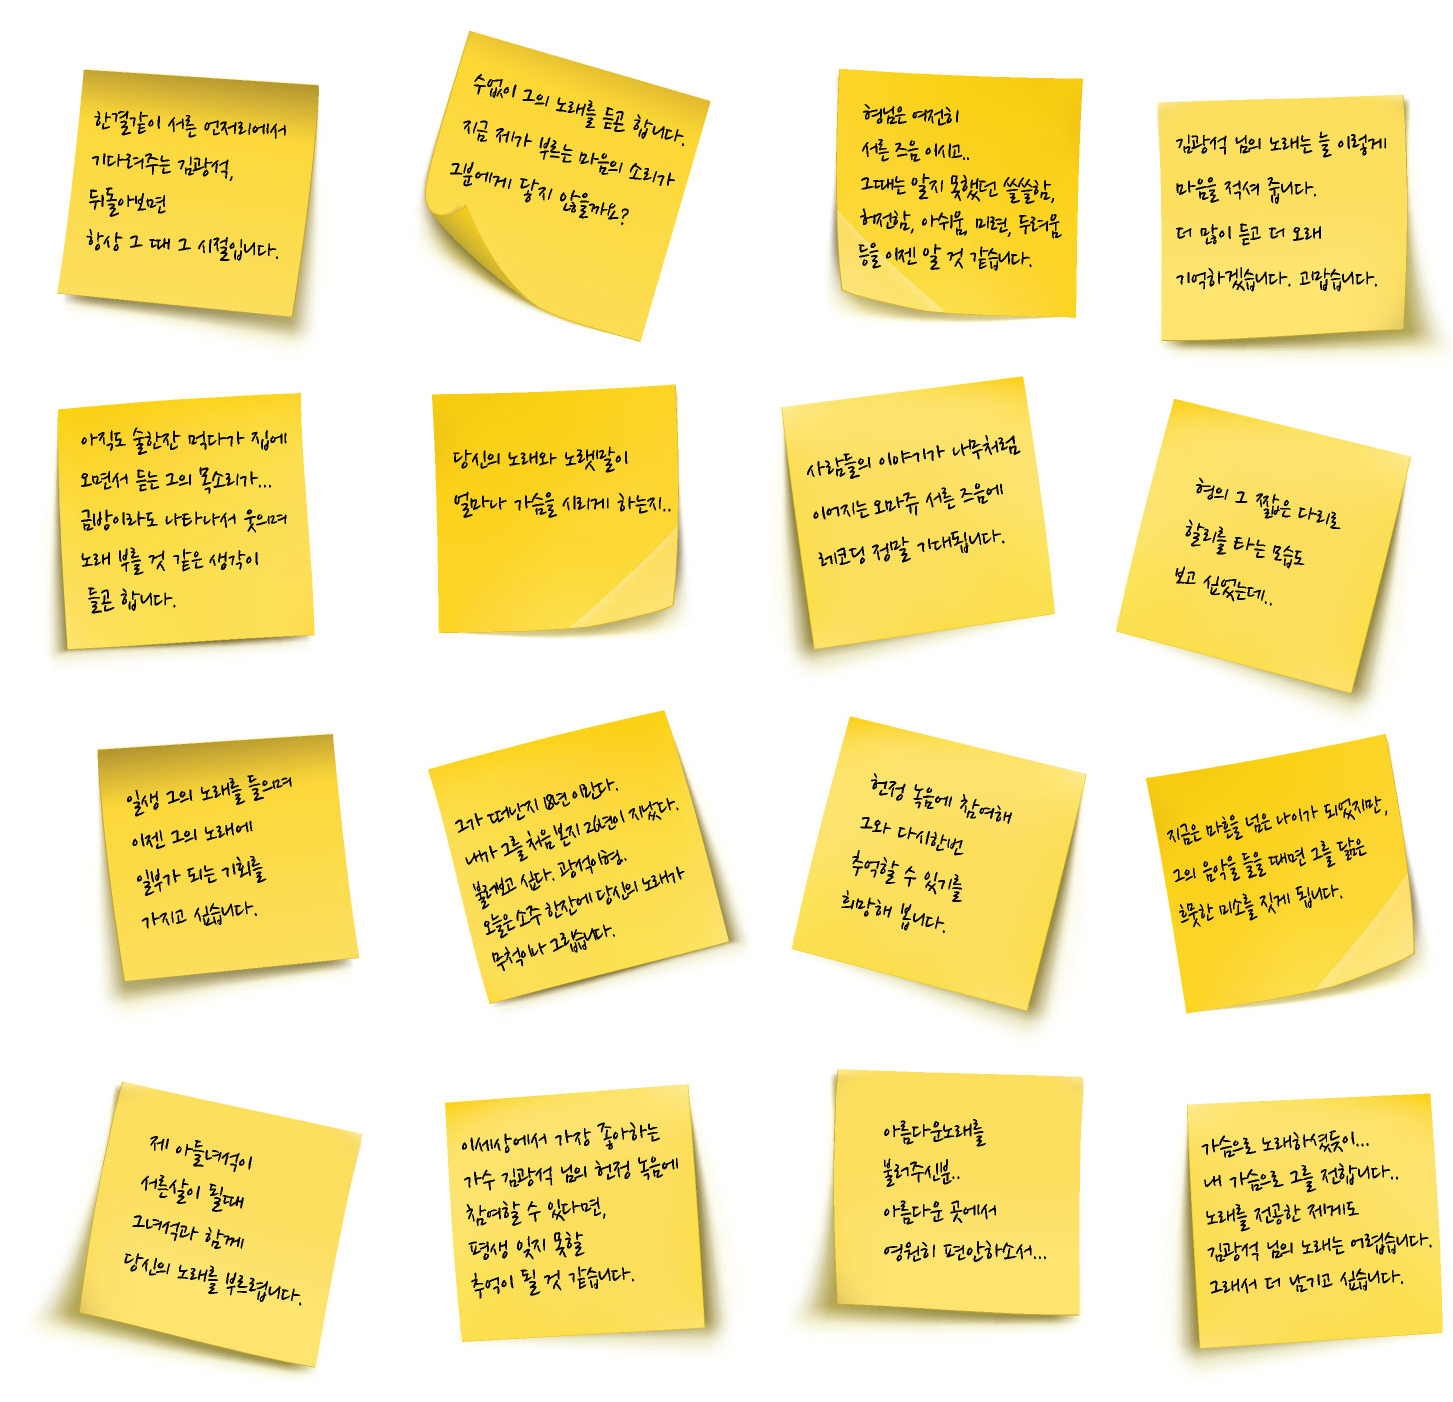 한결같이 서른 언저리에서
기다려주는 김광석,
뒤돌아보면
항상 그 때 그 시절입니다.
수없이 그의 노래를 듣곤 합니다.
지금 제가 부르는 마음의 소리가
그분에게 닿지 않을까요?
형님은 여전히
서른 즈음 이시고..
그때는 알지 못했던 쓸쓸함,
허전함, 아쉬움, 미련, 두려움
등을 이젠 알 것 같습니다.
김광석 님의 노래는 늘 이렇게
마음을 적셔 줍니다.
더 많이 듣고 더 오래
기억하겠습니다. 고맙습니다.
아직도 술한잔 먹다가 집에
오면서 듣는 그의 목소리가...
금방이라도 나타나서 웃으며
노래 부를 것 같은 생각이
들곤 합니다.
당신의 노래와 노랫말이
얼마나 가슴을 시리게 하는지..
사람들의 이야기가 나무처럼
이어지는 오마쥬 서른 즈음에
레코딩 정말 기대됩니다.
형의 그 짧은 다리로
할리를 타는 모습도
보고 싶었는데..
일생 그의 노래를 들으며
이젠 그의 노래에
일부가 되는 기회를
가지고 싶습니다.
그가 떠난지 18년 이란다.
내가 그를 처음 본지 26년이 지났다.
불러보고 싶다. 광석이형.
오늘은 소주 한잔에 당신의 노래가
무척이나 그립습니다.
헌정 녹음에 참여해
그와 다시한번
추억할 수 있기를
희망해 봅니다.
지금은 마흔을 넘은 나이가 되었지만,
그의 음악을 들을 때면 그를 닮은
흐뭇한 미소를 짓게 됩니다.
제 아들녀석이
서른살이 될때
그녀석과 함께
당신의 노래를 부르렵니다.
이세상에서 가장 좋아하는
가수 김광석 님의 헌정 녹음에
참여할 수 있다면,
평생 잊지 못할
추억이 될 것 같습니다.
아름다운노래를
불러주신분..
아름다운 곳에서
영원히 편안하소서...
가슴으로 노래하셨듯이...
내 가슴으로 그를 전합니다..
노래를 전공한 제게도
김광석 님의 노래는 어렵습니다.
그래서 더 남기고 싶습니다.